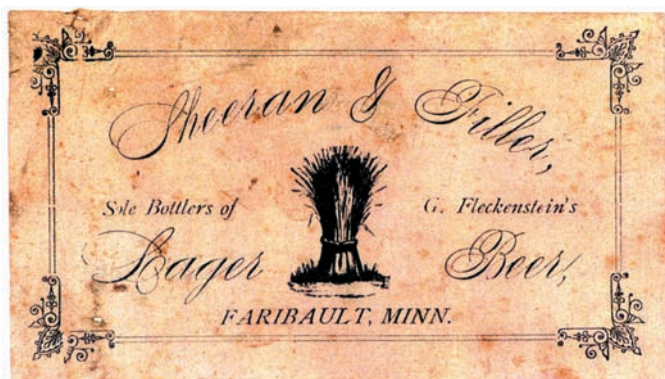 Sheeran & Filler,
Sole Bottlers of G. Fleckenstein's
Lager Beer,
FARIBAULT, MINN.